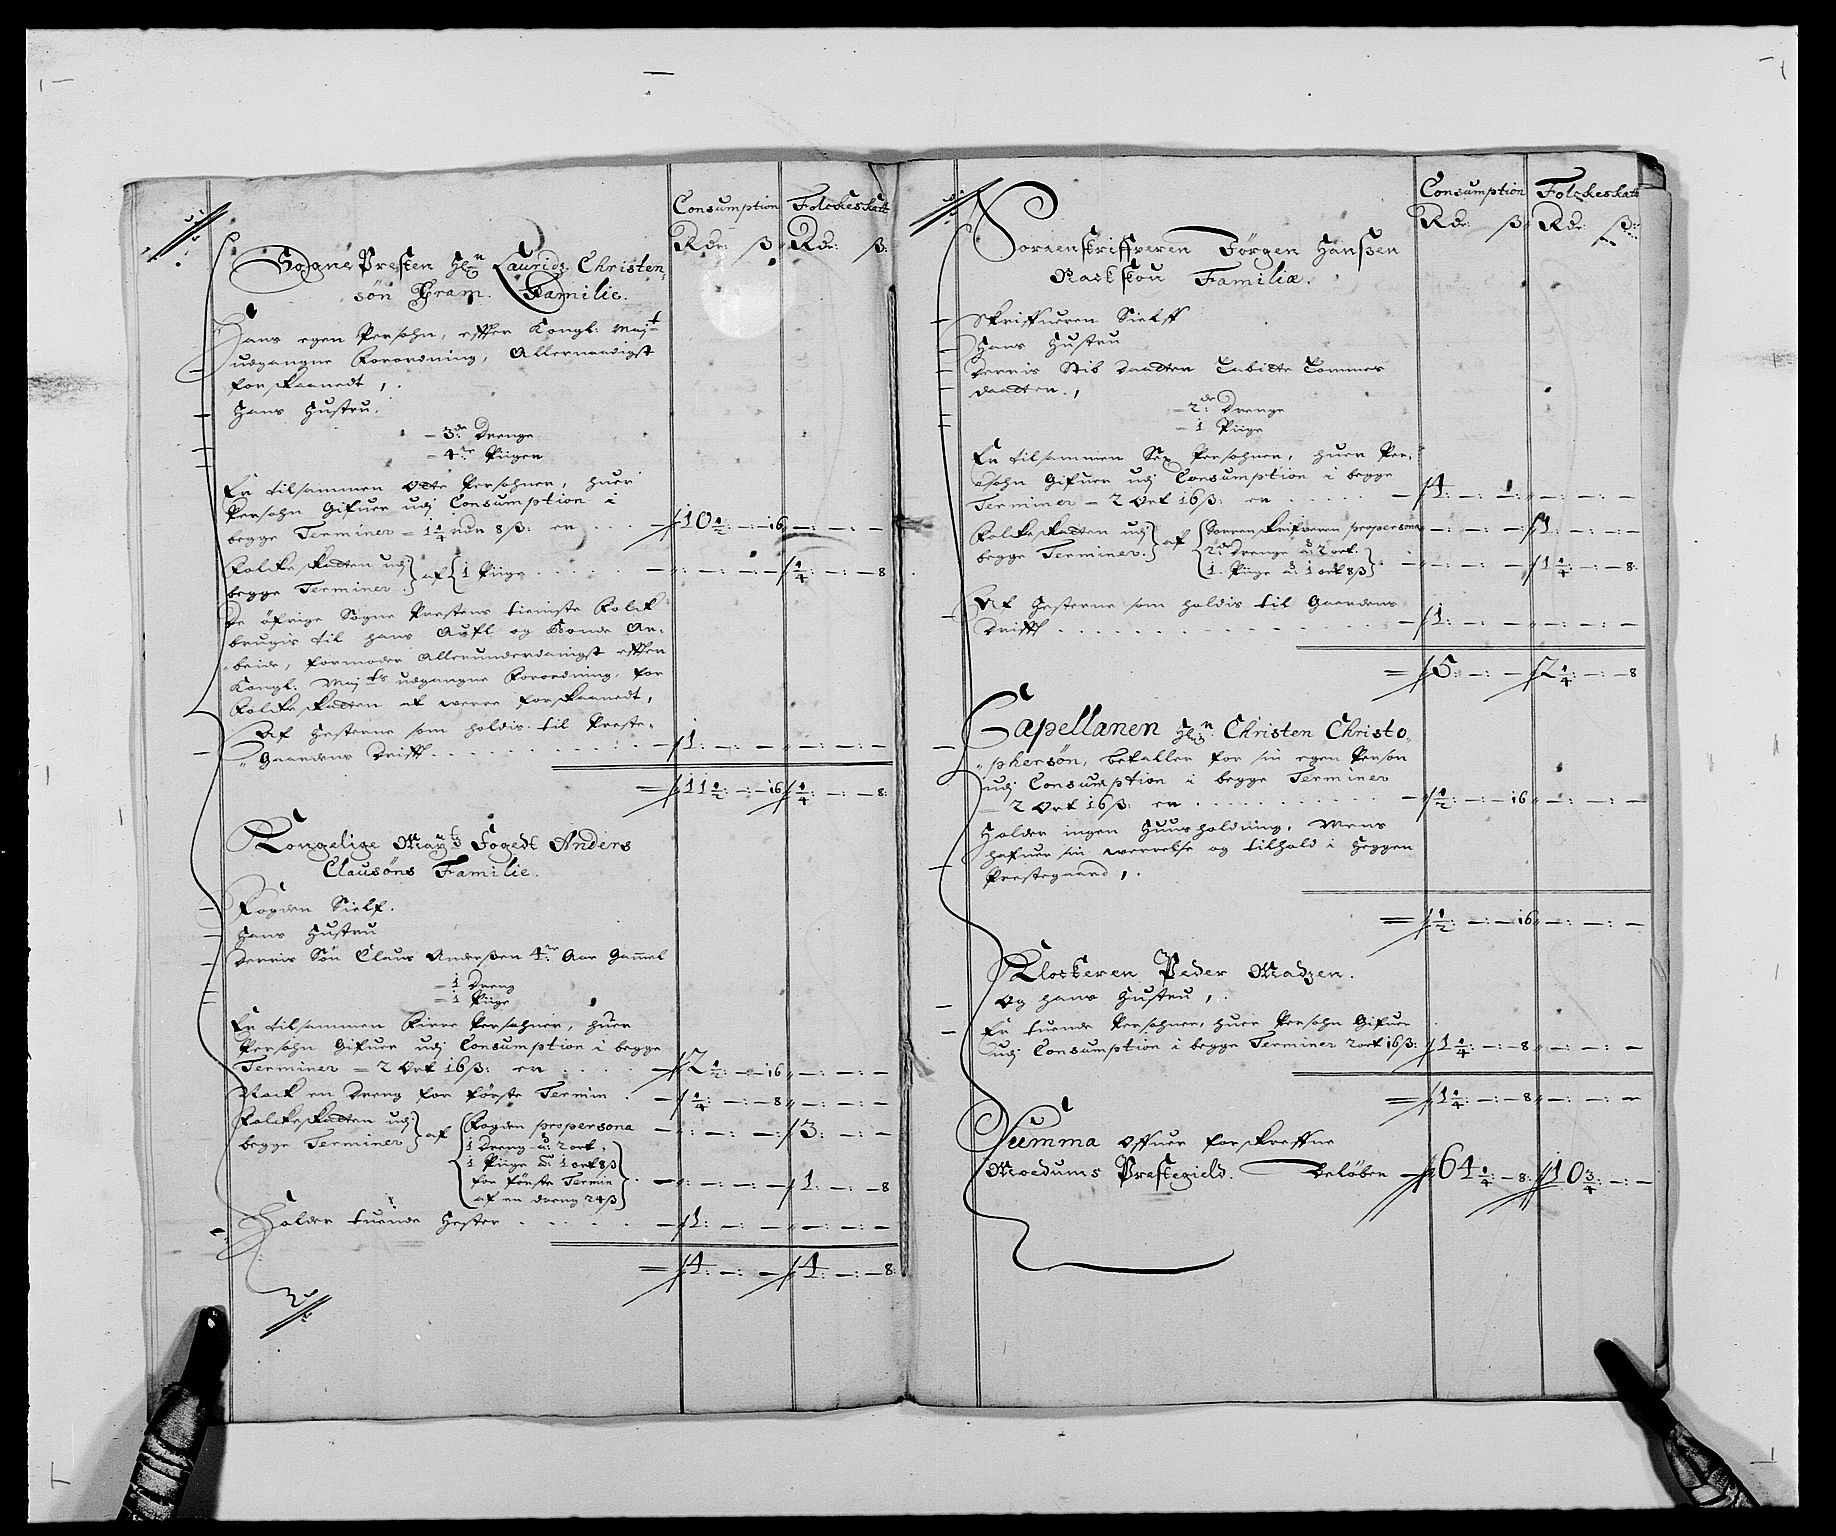 Consumption Folckeskatt
Rdr: ß Rdr: ß:
SognePresten Hr: Lauridz Christen-
søn Gram. Familie.
Hans egen Persohn, effter Kongl: Maj:t
udgangne Forordning, Allernaadigst
forskaanedt,.
Hans Hustru.
– 3de: Drenge
– 4re: Piiger
Er tilsammen Otte Persohner, huer
Persohn Gifuer udj Consumption i
begge Terminer – 1 1/4 rdr 8ß: er . . . – 10 1/2: – : – 16 – : – : –
Folckeskatten udj
begge Terminer } af { 1 Piige . . . . – : – : – 1/4: – : – 8
De öfrige Sogne Prestens tieniste Folck
brugis til hans Aufl og Bonde Ar-
beide, formoder Allerunderdanigst effter
Kongl: Maj:ts udgangne Forordning, for
Folckeskatten at werre forskaanedt,
Af Hesterne som holdis til Preste-
Gaardens Drifft . . . . . – 1: – : – – : – : –
= 11 1/2: – : – 16 1/4: – : – 8:
Kongelige May:ts Fogedt Anders
Clausöns Familie.
Fogden Sielf.
Hans Hustru
Derris Sön Claus Anderßen 4re: Aar Gammel
– 1 Dreng
– 1 Piige
Er tilsammen Firre Persohner, huer
Persohn Gifuer udj Consumption i begge
Terminer – 2 Ort 16ß: er . . . . – 2 1/2: – : – 16 – : – : –
Nock en Dreng for förste Termin . – 1/4: – : – 8 – : – : –
Folckeskatten udj
begge Terminer } af { Fogden propersona – : – : – 3: – : –
1 Dreng â: 2 ort.
1 Piige â: 1 ort 8ß
for förste Termin
af en dreng 24ß } . – : – : – 1: – : – 8
Holder tuende Hester . . . . . – 1: – : – – : – : –
= 4: – : – 4: – : – 8:
Consumption Folckeskatt
Rdr: ß Rdr: ß:
Sorrenskriffveren Jörgen Hanßen
Familiæ.
Skriffueren Sielff
Hans Hustru
Derris
daatter.,
– 2de: Drenge
– 1 Piige
Er tilsammen Sex Persohner, huer Per-
sohn Gifuer udj Consumption i begge
Terminer – 2 Ort 16ß: er . . . . . – 4: – : – – : – : –
Folckeskatten udj
begge Terminer. } af { Sorrenskrifveren propersona – : – : – 1: – : –
2de: Drenge â: 2 ort.
1. Piige â: 1 ort 8ß } – : – : – 1 1/4: – : – 8:
Af Hesterne som holdis til Gaardens
Drifft . . . . . . . . – 1: – : – – : – : –
= 5: – : – 2 1/4: – : – 8
Capellanen Hr: Christen Christo-
phersön, betaller for sin egen Person
udj Consumption i begge Terminer
– 2 Ort 16ß: er . . . . . . . – 1/2: – : – 16 – : – : –
Holder ingen Huusholdning, Mens
hafuer sin werrelse og tilhold i Heggen
Prestegaard,.
= 1/2: – : – 16 – : – : –
Klockeren Peder Madzen.
Og hans Hustru,.
Er tuende Persohner, huer Persohn Gifuer
udj Consumption i begge Terminer 2 ort 16ß: 1 1/4: – : – 8 – : – : –
= 1 1/4: – : – 8 – : – : –
Summa offuer forskreffne
Moedums Prestegield. Belöber – 64 1/4: – 8: 10 3/4: – : –